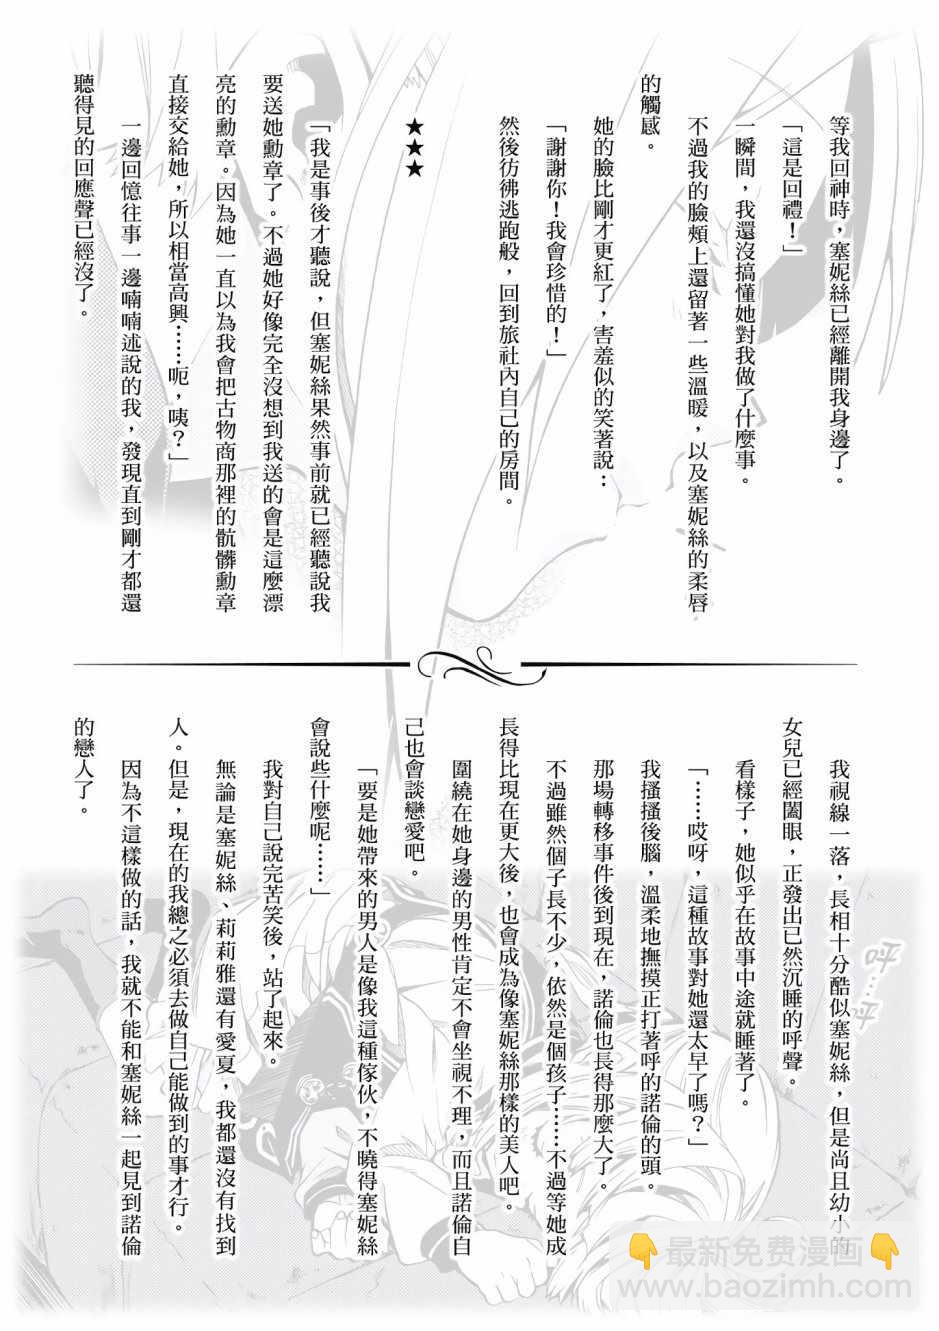 等我回神時，塞妮絲已經離開我身邊了。
「這是回禮！」
一瞬間，我還沒搞懂她對我做了什麼事。
不過我的臉頰上還留著一些溫暖，以及塞妮絲的柔唇
的觸感。
她的臉比剛才更紅了，害羞似的笑著說：
「謝謝你！我會珍惜的！」
然後彷彿逃跑般，回到旅社內自己的房間。
★★★
「我是事後才聽說，但塞妮絲果然事前就已經聽說我
要送她勳章了。不過她好像完全沒想到我送的會是這麼漂
亮的勳章。因為她一直以為我會把古物商那裡的骯髒勳章
直接交給她，所以相當高興……呃，咦？」
一邊回憶往事一邊喃喃述說的我，發現直到剛才都還
聽得見的回應聲已經沒了。
我視線一落，長相十分酷似塞妮絲，但是尚且幼小的
女兒已經闔眼，正發出已然沉睡的呼聲。
看樣子，她似乎在故事中途就睡著了。
「……哎呀，這種故事對她還太早了嗎？」
我搔搔後腦，溫柔地撫摸正打著呼的諾倫的頭。
那場轉移事件後到現在，諾倫也長得那麼大了。
不過雖然個子長不少，依然是個孩子……不過等她成
長得比現在更大後，也會成為像塞妮絲那樣的美人吧。
圍繞在她身邊的男性肯定不會坐視不理，而且諾倫自
己也會談戀愛吧。
「要是她帶來的男人是像我這種傢伙，不曉得塞妮絲
會說些什麼呢……」
我對自己說完苦笑後，站了起來。
無論是塞妮絲、莉莉雅還有愛夏，我都還沒有找到
人。但是，現在的我總之必須去做自己能做到的事才行。
因為不這樣做的話，我就不能和塞妮絲一起見到諾倫
的戀人了。
呼…呼
👇最新免费漫画👇
www.baozimh.com